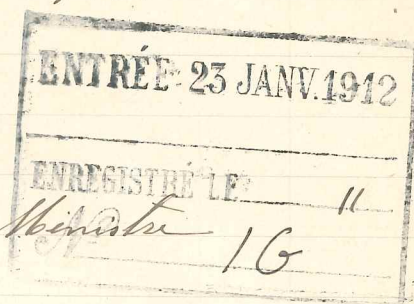 ENTRÉE 23 JANV. 1912
ENREGISTRÉ LE "
Ministre
N° 16